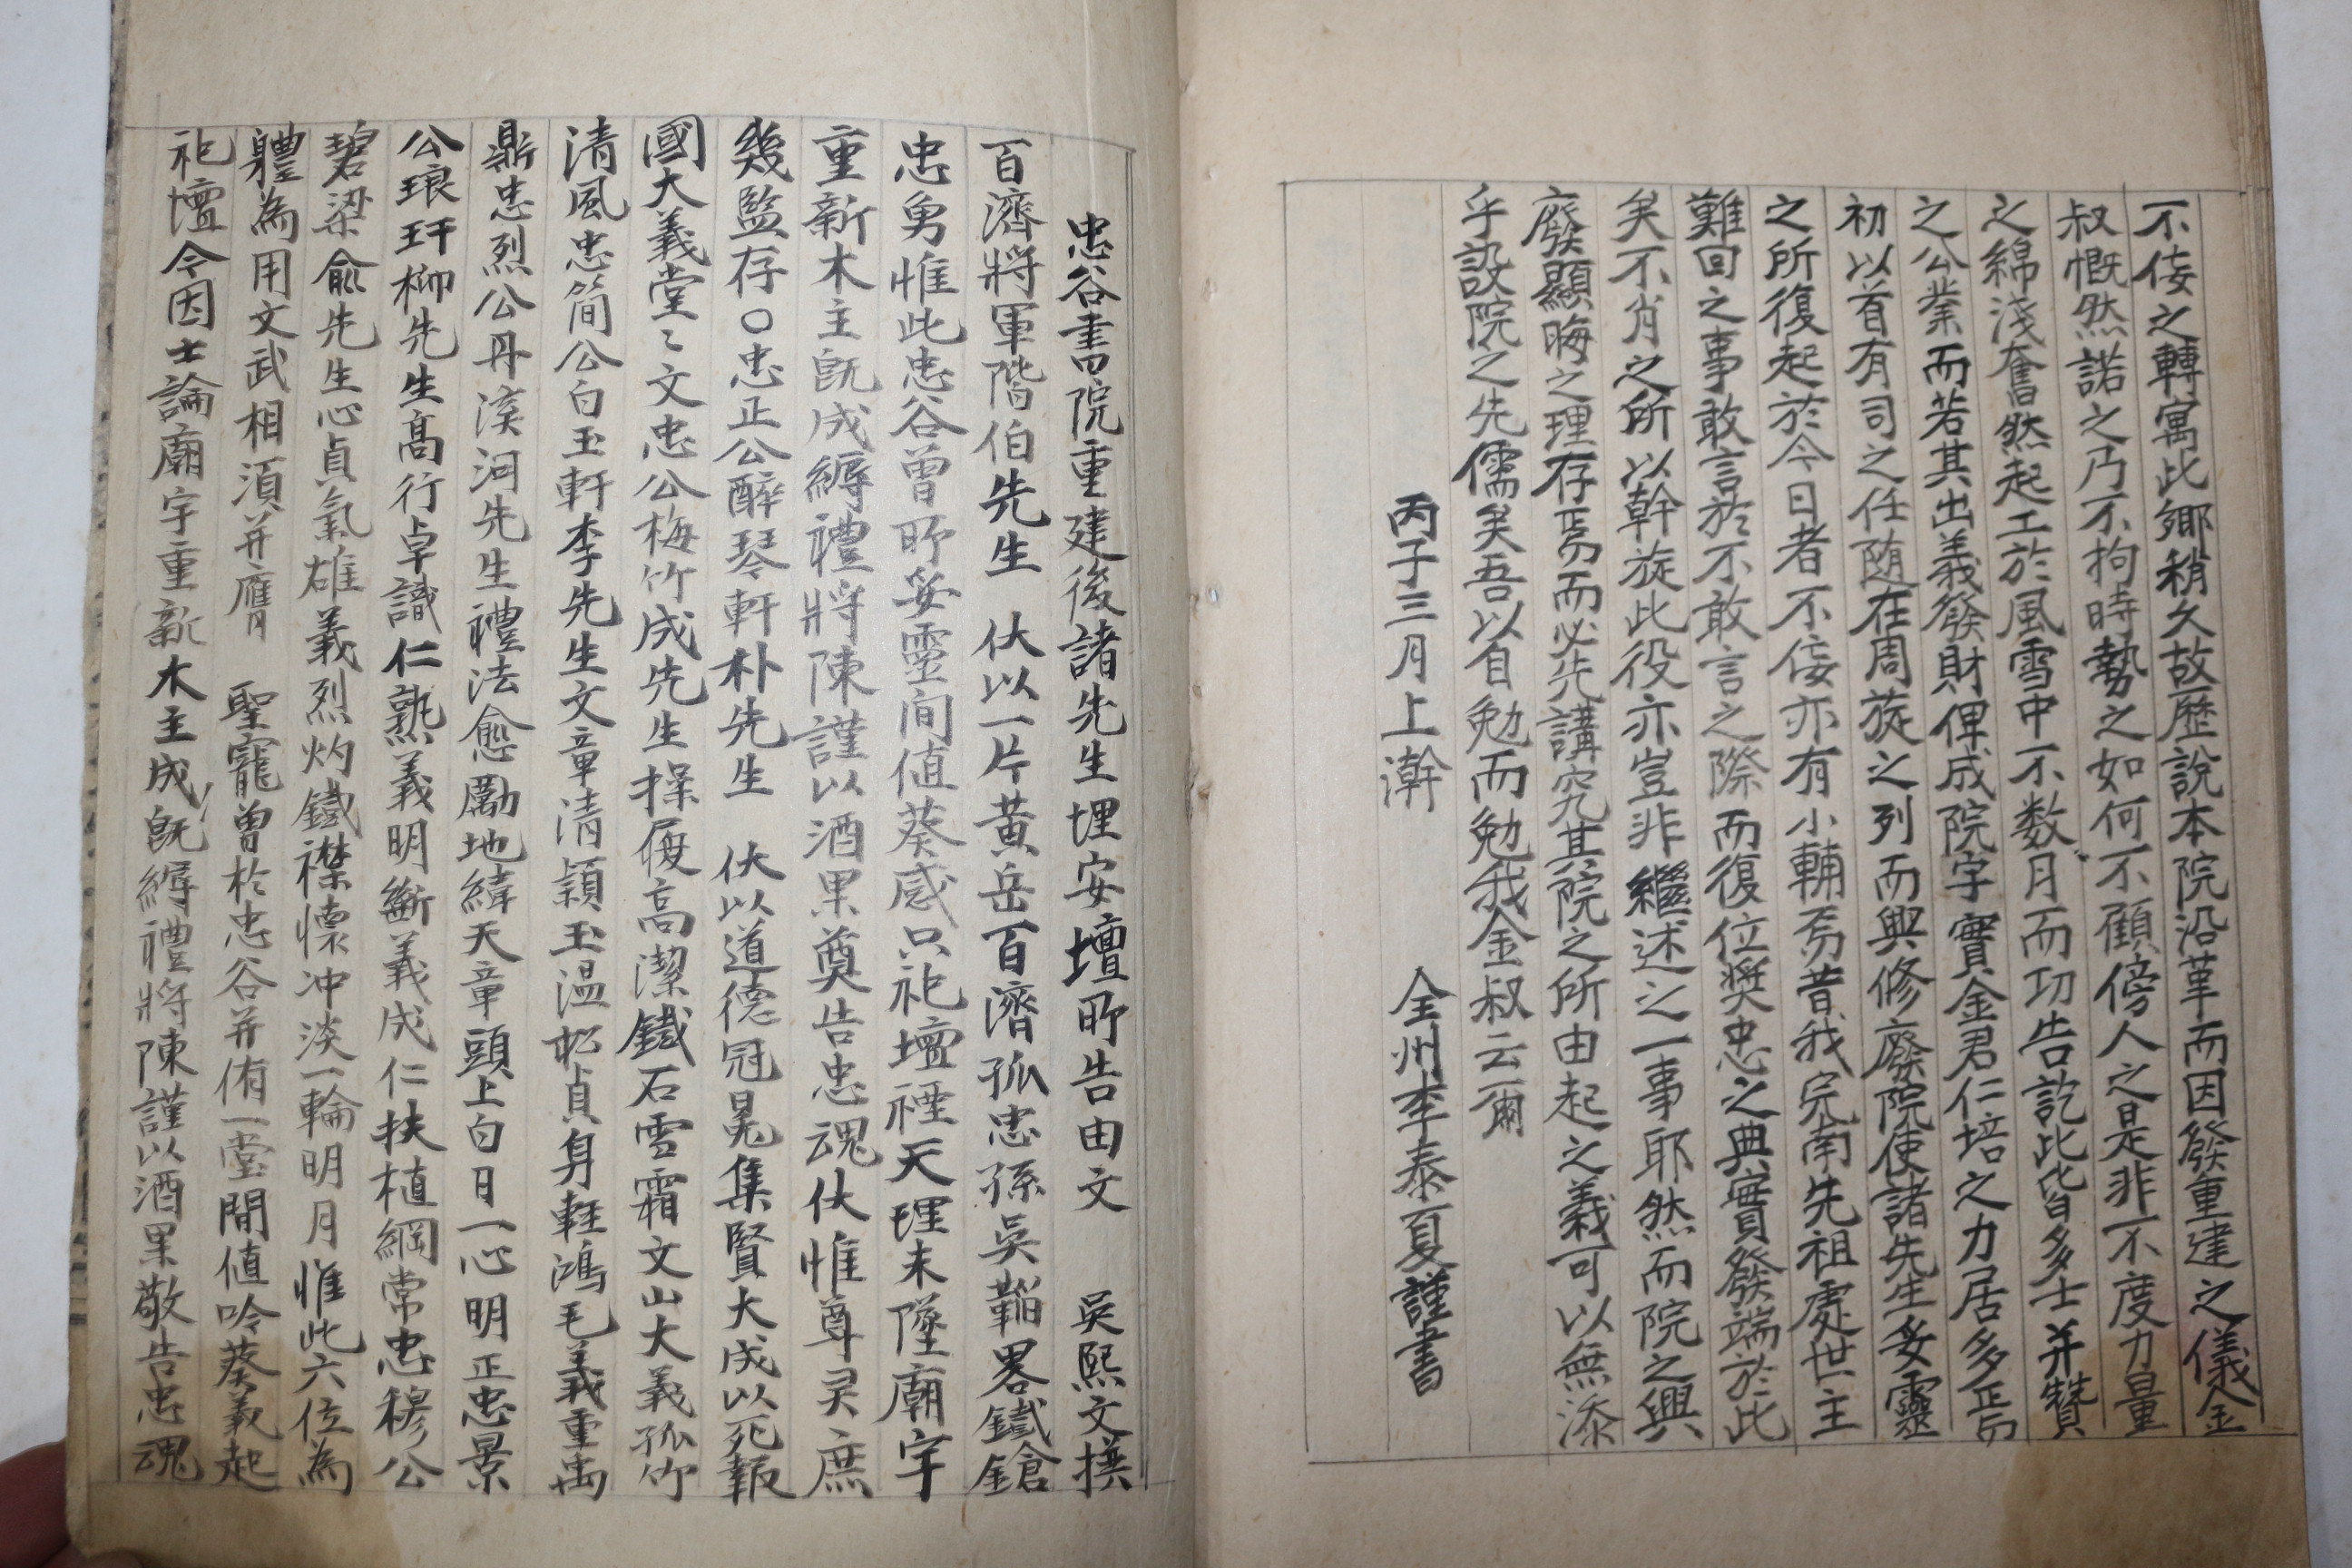 不佞之轉寓此鄉稍久故歷說本院沿革而因發重建之儀金
叔慨然諾之乃不拘時勢之如何不顧傍人之是非不度力量
之綿淺奮然起工於風雪中不数月而功告訖此皆多士并贊
之公業而若其出義發財俾成院宇實金君仁培之力居多焉
初以首有司之任随在周旋之列而與修廢院使諸先生妥靈
之所復起於今日者不佞亦有小輔焉昔我完南先祖處世主
難回之事敢言於不敢言之際而復位奬忠之典實發端於此
矣不肖之所以幹旋此役亦豈非繼述之一事耶然而院之興
廢顯晦之理存焉而必先講究其院之所由起之義可以無忝
乎設院之先儒矣吾以自勉而勉我金叔云爾
丙子三月上澣 全州李泰夏謹書
忠谷書院重建後諸先生埋安壇所告由文 吳熙文撰
百濟將軍階伯先生 伏以一片黄岳百濟孤忠孫吳韜畧鐵鎗
忠勇惟此忠谷曾所妥靈間値葵感只祀壇禋天理未墜廟宇
重新木主既成縟禮將陳謹以酒果奠告忠魂伏惟尊灵庶
幾監存〇忠正公醉琴軒朴先生 伏以道德冠冕集賢大成以死報
國大義堂〻文忠公梅竹成先生操履高潔鐵石雪霜文山大義孤竹
清風忠簡公白玉軒李先生文章清頴玉温松貞身輕鴻毛義重禹
鼎忠烈公丹溪河先生禮法愈勵地緯天章頭上白日一心明正忠景
公琅玕柳先生高行卓識仁熟義明斷義成仁扶植綱常忠穆公
碧梁俞先生心貞氣雄義烈灼鐵襟懷冲淡一輪明月惟此六位為
軆為用文武相須并膺 聖寵曽於忠谷并侑一堂間値吟葵義起
祀壇今因士論廟宇重新木主成既縟禮將陳謹以酒果敬告忠魂